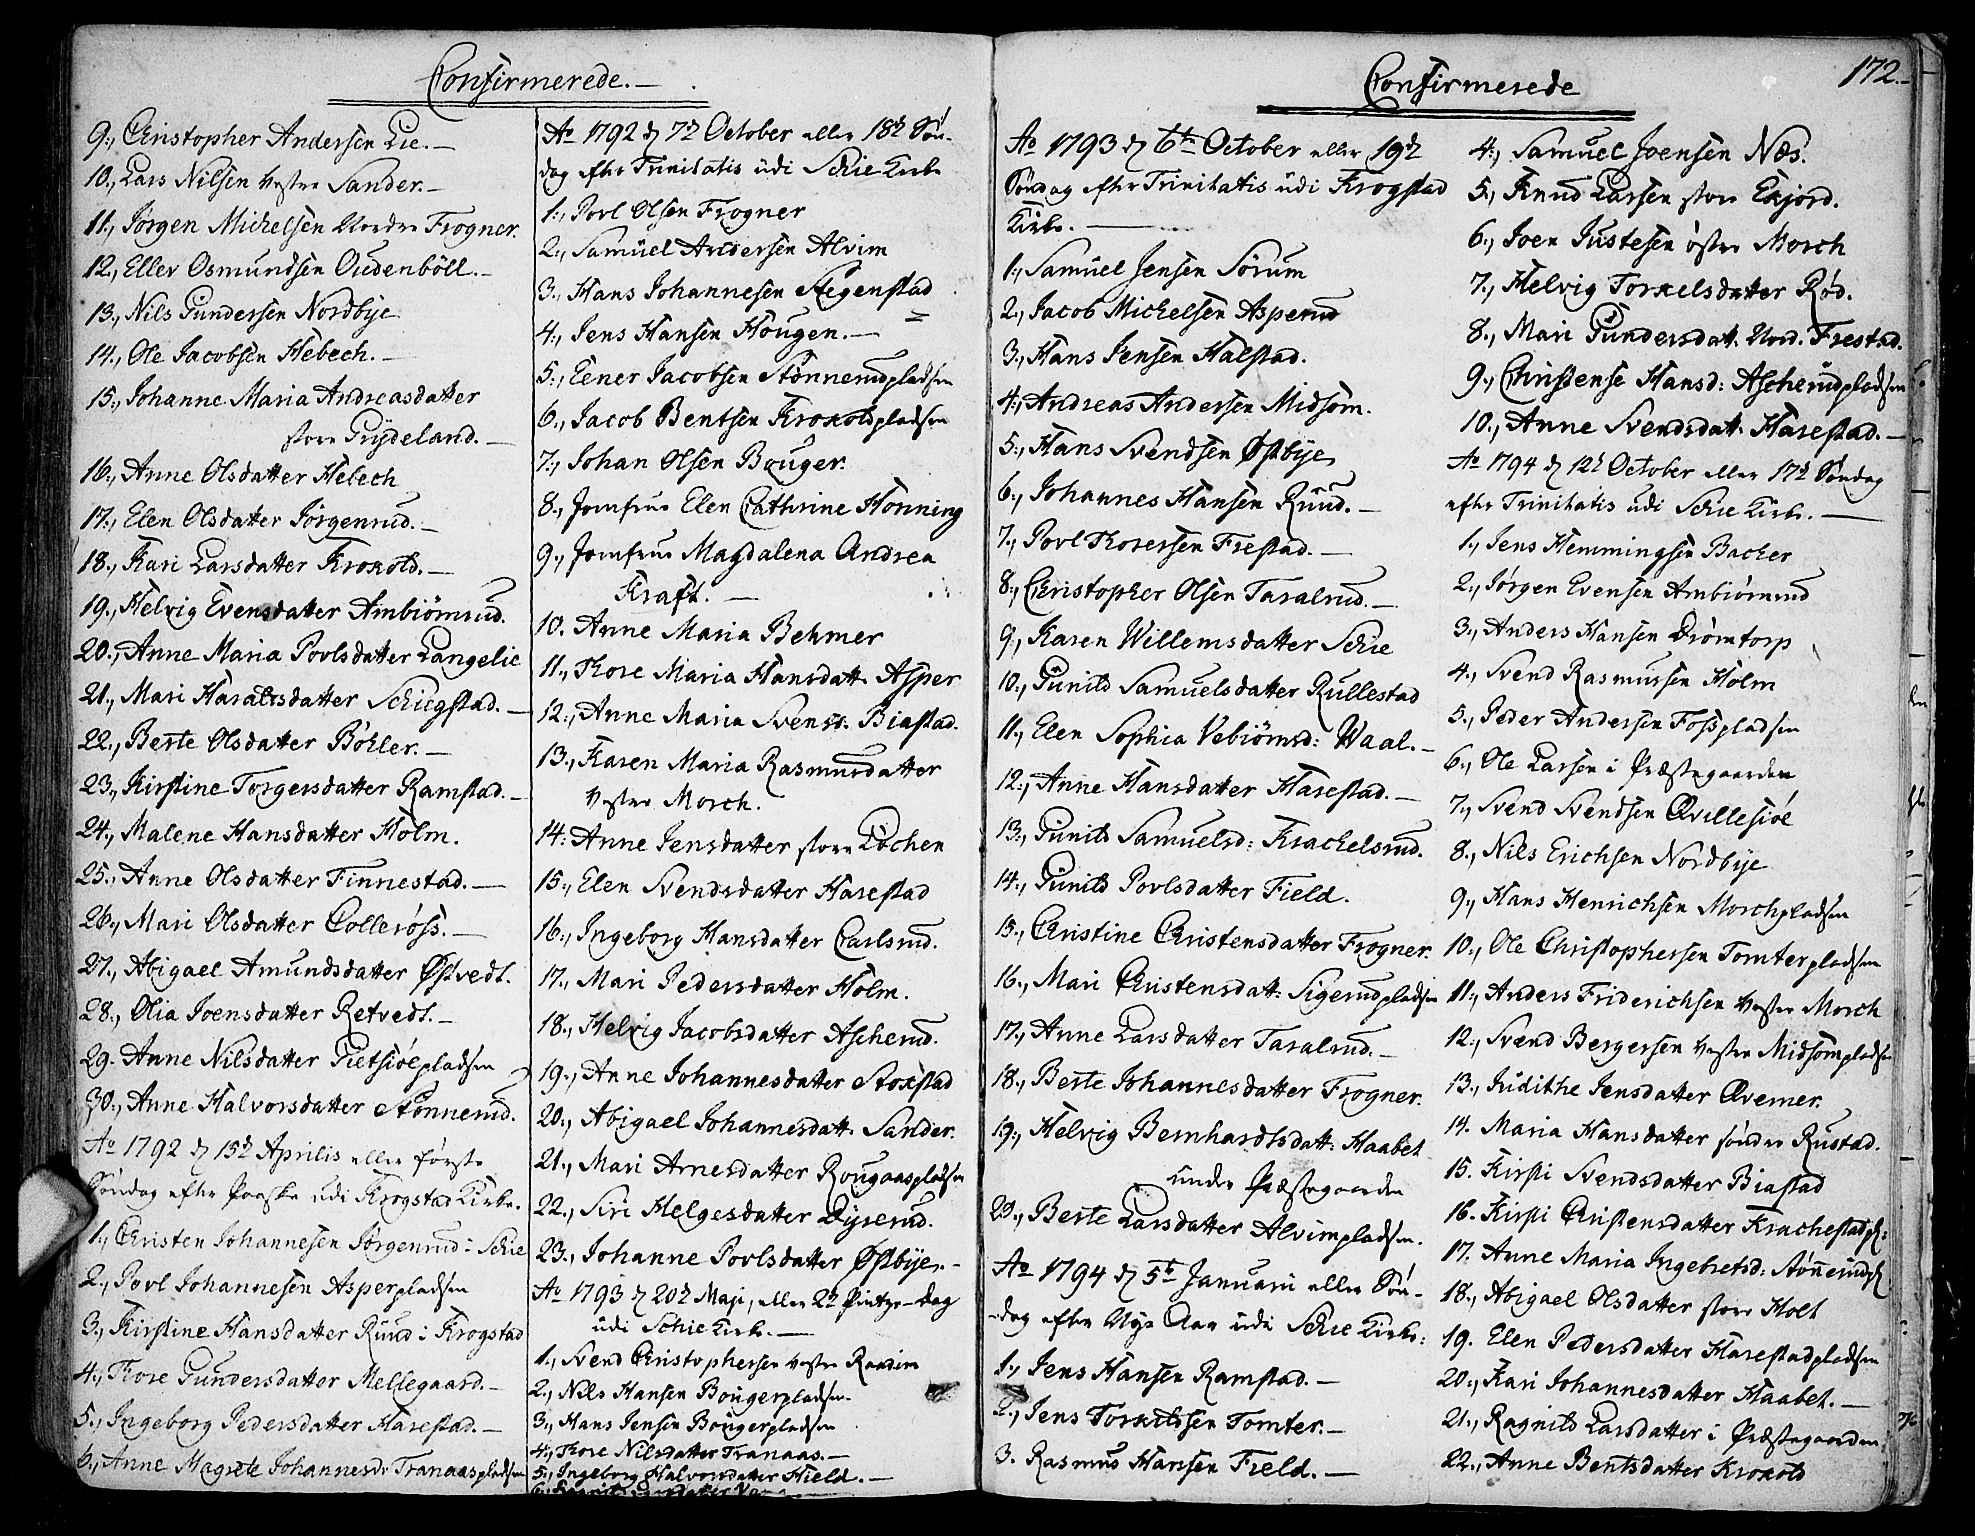 Confirmerede.
9., Christopher Andersen Lie.
10., Lars Nilsen Vestre Sander.
11., Jørgen Michelsen Nordre Frogner.
12., Ellev Osmundsen Oudenböll.
13., Nils Gundersen Nordbÿe
14., Ole Jacobsen Hebech.
15., Johanne Maria Andreasdatter
store Grÿdeland.
16., Anne Olsdatter Hebech
17., Elen Olsdatter Jørgenrud.
18., Kari Larsdatter Kroxold.
19., Helvig Evensdatter Ambiörnrud.
20., Anne Maria Povlsdatter Langelie
21., Mari Haraldsdatter Schiegstad.
22., Berte Olsdatter Böhler.
23., Kirstine Torgersdatter Ramstad.
24., Malene Hansdatter Holm.
25., Anne Olsdatter Finnestad.
26., Mari Olsdatter Colleröss.
27., Abigael Amundsdatter Østvedt.
28., Olia Joensdatter Retvedt.
29. Anne Nilsdatter Gietsiöepladsen
30., Anne Halvorsdatter Stönnerud.
Ao 1792 d 15d Aprilis eller förste
Söndag efter Paaske udi Krogstad Kirke.
1., Christen Johannesen Jörgenrud i Schie
2., Povl Johannesen Asperpladsen
3., Kirstine Hansdatter Ruud i Krogstad
4., Thore Gundersdatter Mellegaard.
5., Ingeborg Pedersdatter Harestad.
6., Anne Magrete Johannesdr Tranaaspladsen
Ao 1792 d 7d October eller 18d Sön-
dag efter Trinitatis udi Schie Kirke
1., Povl Olsen Frogner
2., Samuel Andersen Alvim
3., Hans Johannesen Stegenstad
4., Jens Hansen Hougen.
5., Eener Jacobsen Stönnerudpladsen
6., Jacob Bentsen Kroxoldpladsen
7., Johan Olsen Bouger.
8., Jomfrue Elen Cathrine Honning
9., Jomfrue Magdalena Andrea
Kraft.
10. Anne Maria Behmer
11., Thore Maria Hansdatt. Asper
12., Anne Maria Svensd: Biastad.
13., Karen Maria Rasmusdatter
Vestre Morch.
14: Anne Jensdatter store Löchen
15., Elen Svendsdatter Harestad
16., Ingeborg Hansdatter Carlsrud.
17., Mari Pedersdatter Holm.
18., Helvig Jacobsdatter Ascherud.
19., Anne Johannesdatter Stoxstad
20., Abigael Johannesdatt. Sander.
21., Mari Arnesdatter Rougaaspladsen
22., Siri Helgesdatter Dÿsterud.
23., Johanne Povlsdatter Østbÿe.
Ao 1793 d 20d Maji, eller 2d Pintze-dag
udi Schie Kirke.
1., Svend Christophersen Vestre Raadim
2., Nils Hansen Bougerpladsen
3., Hans Jensen Bougerpladsen
4., Thore Nilsdatter Tranaas.
5., Ingeborg Halvorsdatter Hield.
Confirmerede
172.
Ao 1793 d 6te October eller 19d
Söndag efter Trinitatis udi Krogstad
Kirke.
1., Samuel Jensen Sörum
2., Jacob Michelsen Asperud
3., Hans Jensen Halstad.
4., Andreas Andersen Midsom.
5., Hans Svendsen Østbÿe
6., Johannes Hansen Ruud.
7., Povl Thoresen Frestad.
8., Christopher Olsen Taralrud.
9., Karen Willemsdatter Schie
10., Gunild Samuelsdatter Rullestad
11., Elen Sophia Vebiörnsd: Waal.
12., Anne Hansdatter Harestad.
13., Gunild Samuelsd: Krachelsrud.
14., Gunild Povlsdatter Field.
15., Christine Christensdatter Frogner.
16., Mari Christensdatt: Sigerudpladsen
17., Anne Larsdatter Taralrud.
18., Berte Johannesdatter Frogner.
19., Helvig Bernhardtsdatt: Haabet
under Præstegaarden
20., Berte Larsdatter Alvimpladsen.
Ao 1794 d 5te Januarii eller Sön-
-dag efter Nÿe Aar udi Schie Kirke:
1., Jens Hansen Ramstad.
2., Jens Torkildsen Tomter.
3. Rasmus Hansen Field.
4., Samuel Joensen Næs.
5., Knud Larsen store Exjord.
6., Joen Justesen östre Morch
7., Helvig Torkelsdatter Röd.
8., Mari Gundersdatt. Nord. Frestad.
9., Christense Hansd: Ascherudpladsen
10., Anne Svendsdatt. Harestad.
Ao 1794 d 12d October eller 17d Söndag
efter Trinitatis udi Schie Kirke.
1., Jens Hemmingsen Backer
2., Jørgen Evensen Ambiörnrud
3., Anders Hansen Drömtorp
4., Svend Rasmussen Holm
5., Peder Andersen Fosspladsen
6., Ole Larsen i Præstegaarden
7., Svend Svendsen Qvillesiöe
8., Nils Erichsen Nordbÿe
9., Hans Henrichsen Morchpladsen
10., Ole Christophersen Tomterpladsen
11., Anders Friderichsen Vestre Morch
12., Svend Bergersen Vestre Midsompladsen
13., Judithe Jensdatter Qverner.
14. Maria Hansdatter söndre Rustad.
15. Kirsti Svendsdatter Biastad
16. Kirsti Christensdatter Krachestadpl:
17. Anne Maria Ingebretsd: Stönnerudpl
18., Abigael Olsdatter store Holt
19. Elen Pedersdatter Harestadpladsen
20., Kari Johannesdatter Haabet.
21., Ragnild Larsdatter i Præstegaarden
22., Anne Bentsdatter Kroxold